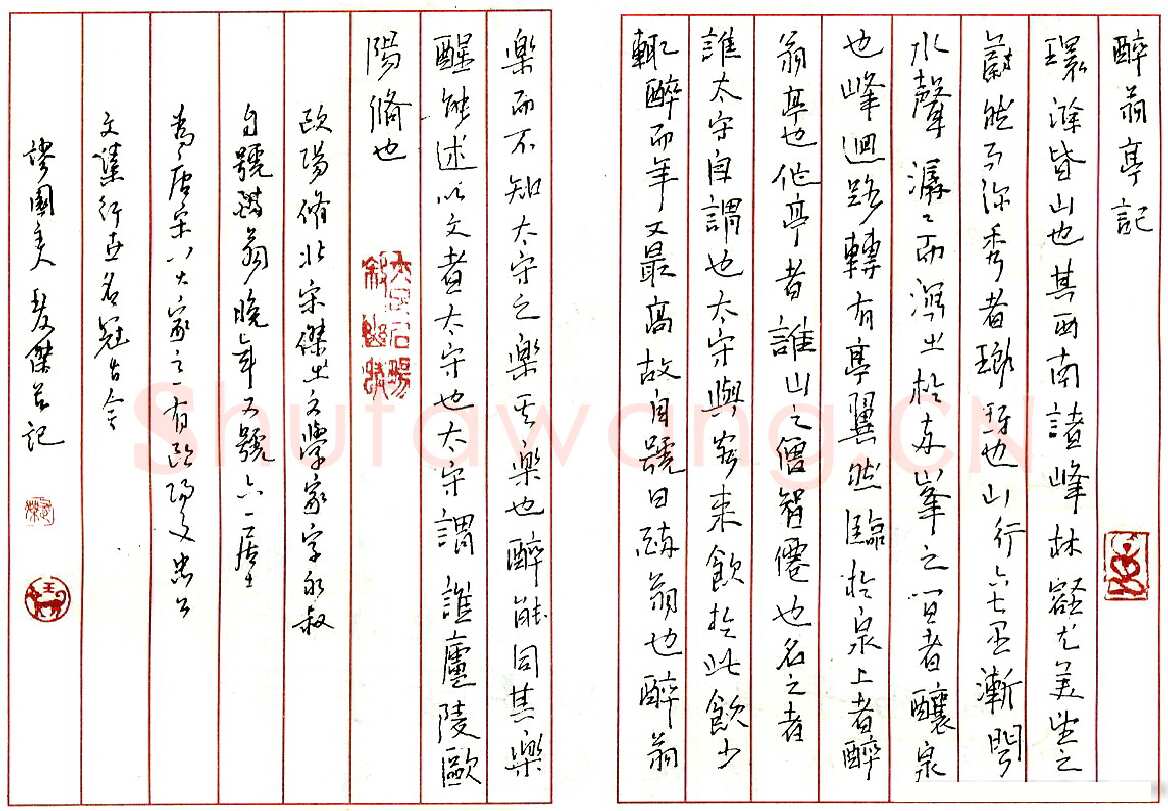 醉翁亭記
環滁皆山也其西南諸峰林壑尤美望之
蔚然而深秀者瑯琊也山行六七里漸聞
水聲潺〻而瀉出於兩峯之間者釀泉
也峰迴路轉有亭翼然臨於泉上者醉
翁亭也作亭者誰山之僧智僊也名之者
誰太守自謂也太守與客来飲於此飲少
輒醉而年又最高故自號曰醉翁也醉翁
樂而不知太守之樂其樂也醉能同其樂
醒能述以文者太守也太守謂誰廬陵歐
陽脩也
歐陽脩北宋傑出文學家字永叔
自號醉翁晚年又號六一居士
為唐宋八大家之一有歐陽文忠公
文集行世名冠古今
國美 傑 記
Shufawang.CN